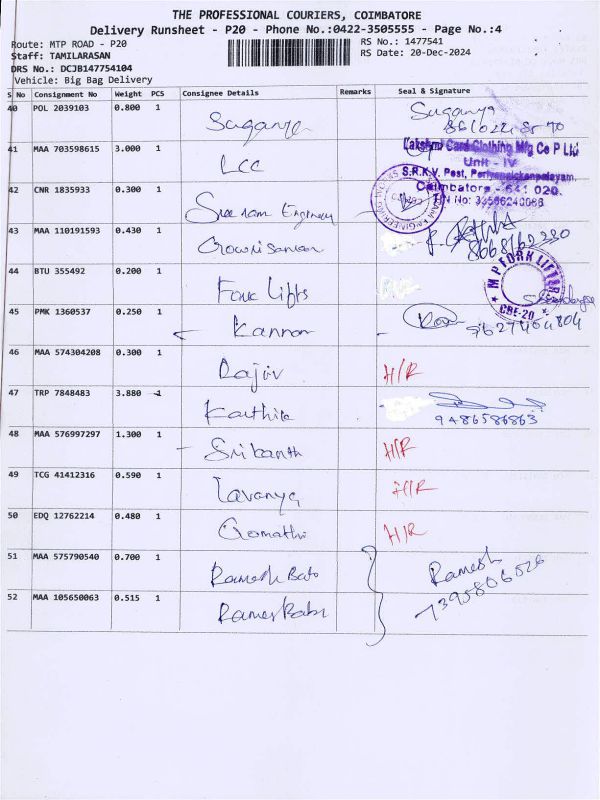 THE PROFESSIONAL COURIERS, COIMBATORE
Delivery Runsheet - P20 - Phone No.:0422-3505555 - Page No.:4
Route: MTP ROAD - P20
RS No.: 1477541
Staff: TAMILARASAN
RS Date: 20-Dec-2024
DRS No.: DCJB147754104
Vehicle: Big Bag Delivery
S No Consignment No Weight PCS Consignee Details Remarks Seal & Signature
40 POL 2039103 0.800 1 Suganya Suganya
41 MAA 703598615 3.000 1 LCC
Lakshmi Card Clothing Mfg Co P Ltd
Unit - IV
S.R.K.V. Post, Periyanaickenpalayam,
Coimbatore - 641 020.
42 CNR 1835933 0.300 1 Sree ram Engineering
43 MAA 110191593 0.430 1 Gowrisankar
44 BTU 355492 0.200 1 Fork Lifts
M P FORK LIFTER
CBE-20
45 PMK 1360537 0.250 1 Kannan
46 MAA 574304208 0.300 1 Rajiv H/R
47 TRP 7848483 3.880 1 Karthik 9486586863
48 MAA 576997297 1.300 1 Srikanth H/R
49 TCG 41412316 0.590 1 Lavanya H/R
50 EDQ 12762214 0.480 1 Gomathi H/R
51 MAA 575790540 0.700 1 Ramesh Babu Ramesh
7395806526
52 MAA 105650063 0.515 1 Ramesh Babu